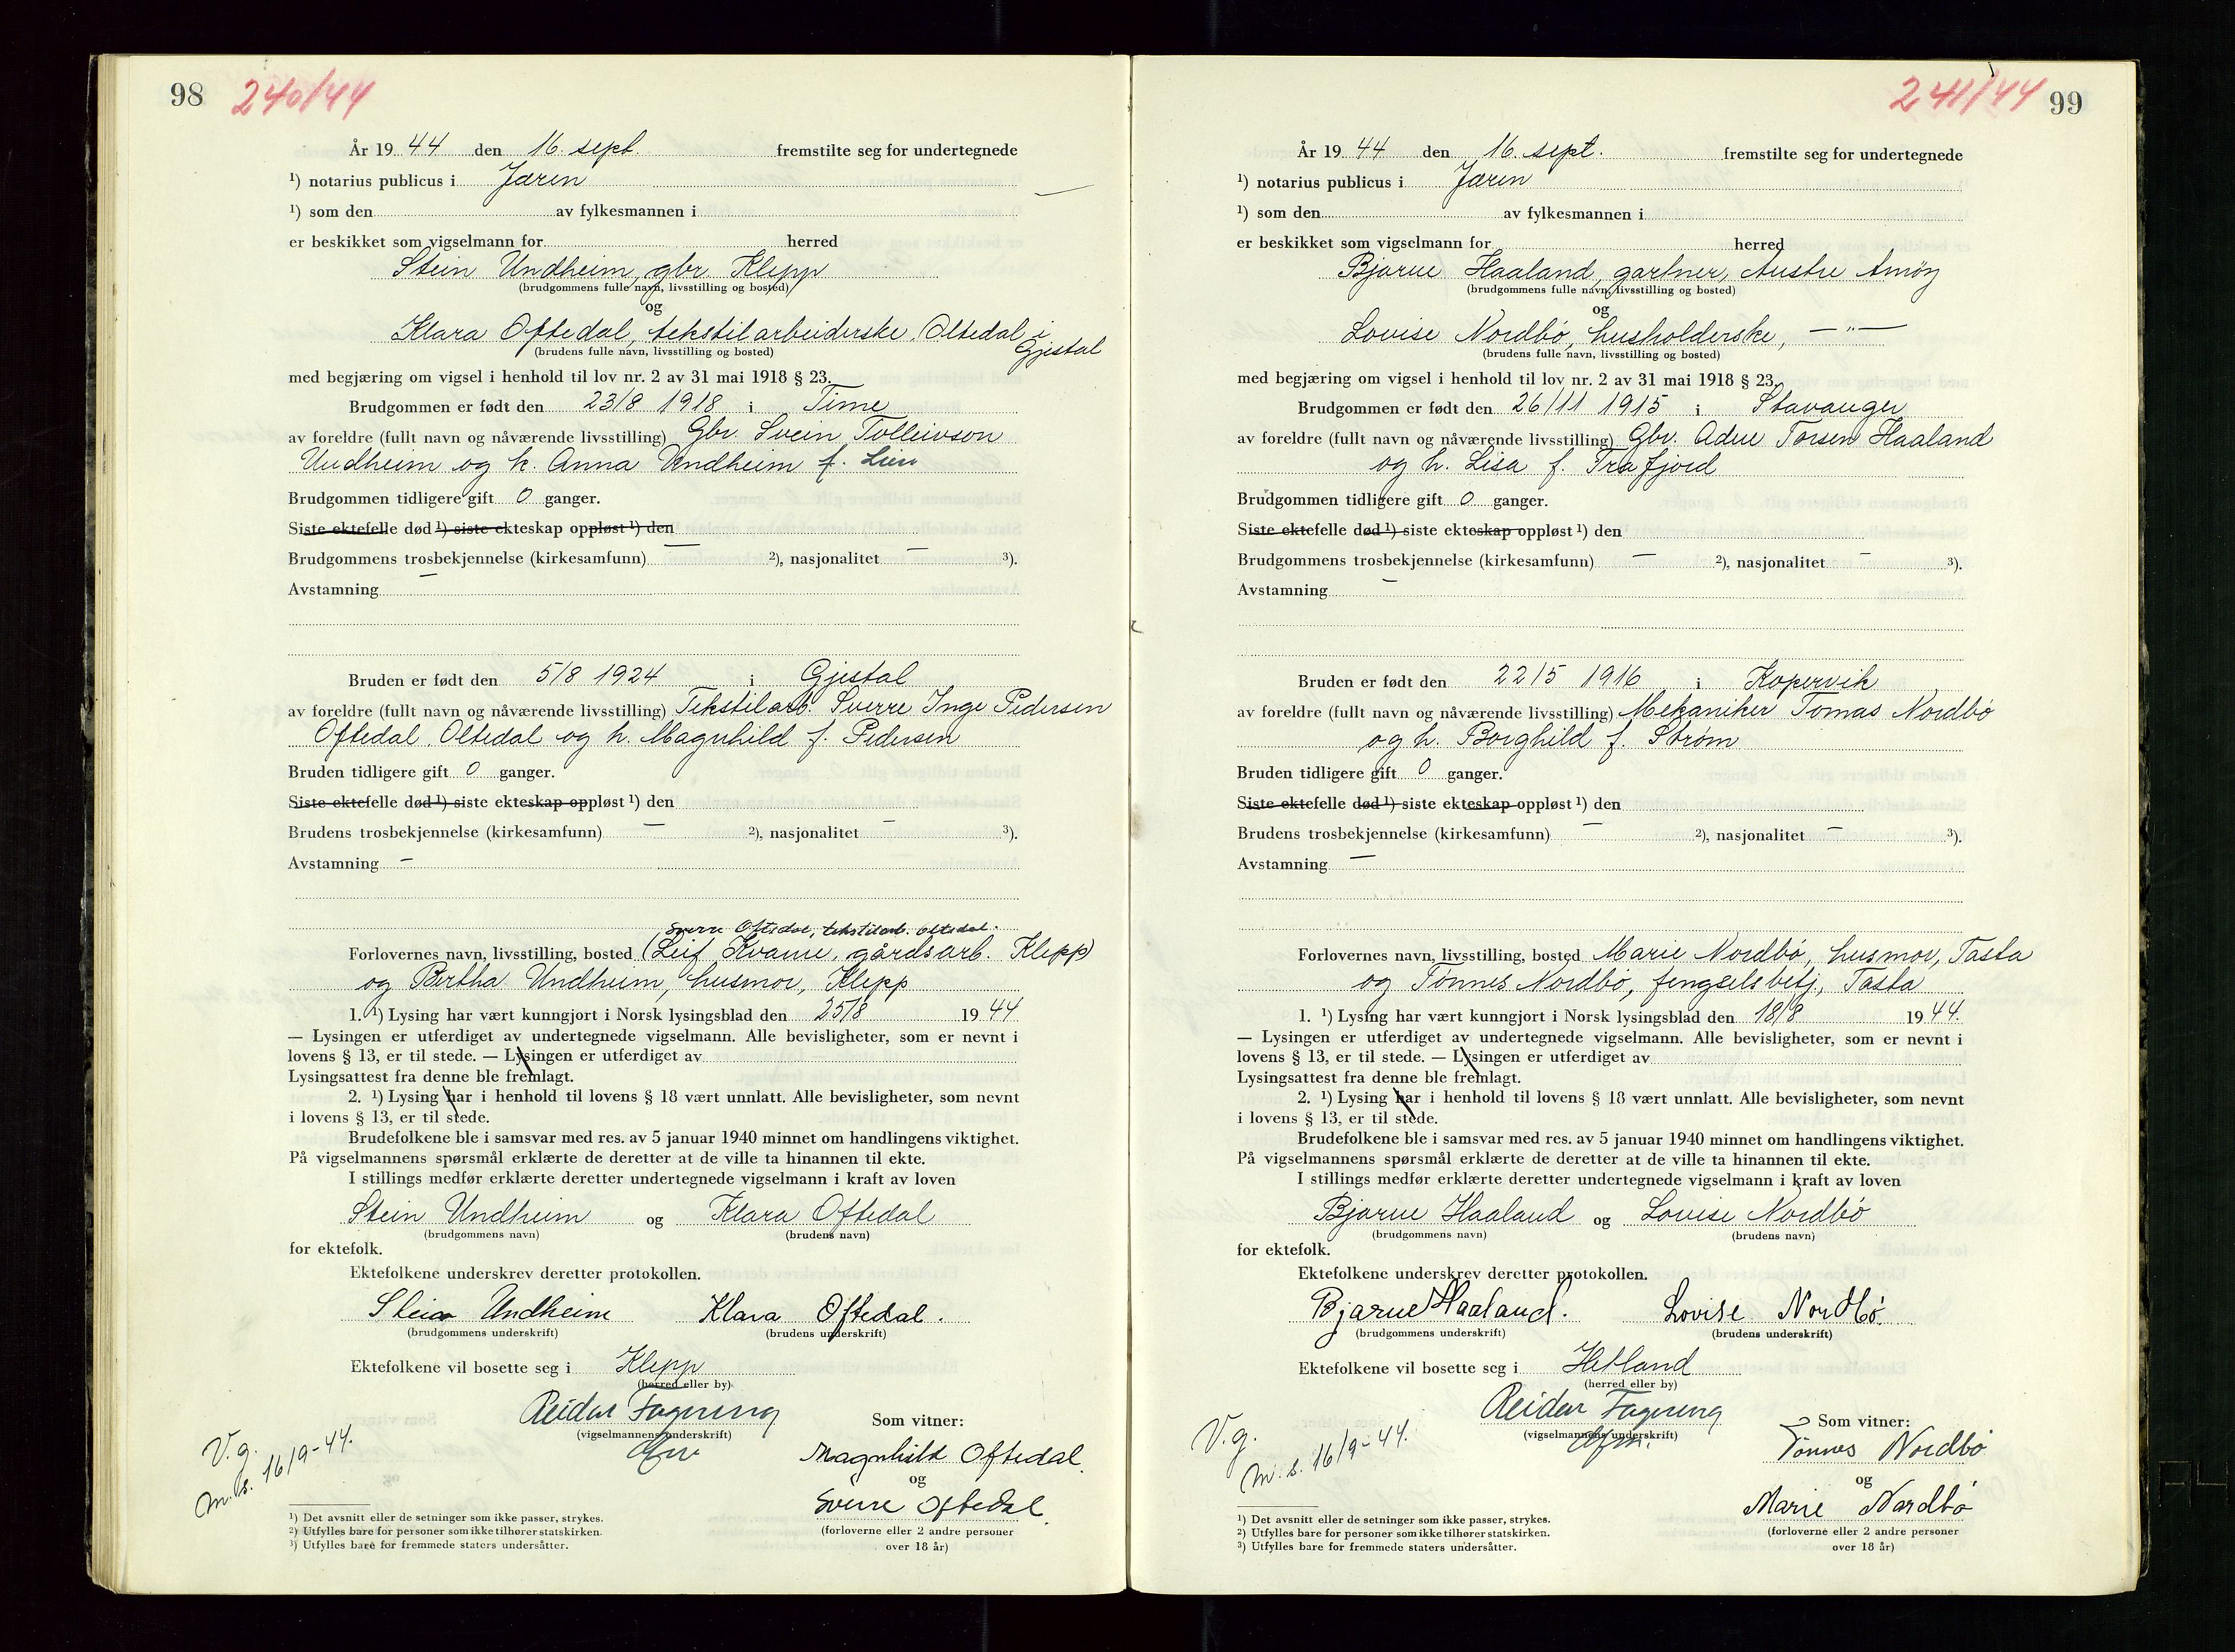 98 240/44
År 19 44 den 16. sept. fremstilte seg for undertegnede
¹) notarius publicus i Jæren
¹) som den av fylkesmannen i
er beskikket som vigselmann for herred
Stein Undheim, gbr. Klepp
(brudgommens fulle navn, livsstilling og bosted)
og
Klara Oftedal, tekstilarbeiderske, Oltedal i
Gjestal
(brudens fulle navn, livsstilling og bosted)
med begjæring om vigsel i henhold til lov nr. 2 av 31 mai 1918 § 23.
Brudgommen er født den 23/8 1918 i Time
av foreldre (fullt navn og nåværende livsstilling) Gbr. Svein Tolleivson
Undheim og h. Anna Undheim f. Lien
Brudgommen tidligere gift 0 ganger.
Siste ektefelle død ¹) siste ekteskap oppløst ¹) den
Brudgommens trosbekjennelse (kirkesamfunn) — ²), nasjonalitet — ³).
Avstamning —
Bruden er født den 5/8 1924 i Gjestal
av foreldre (fullt navn og nåværende livsstilling) Tekstilarb. Sverre Inge Pedersen
Oftedal, Oltedal og h. Magnhild f. Pedersen
Bruden tidligere gift 0 ganger.
Siste ektefelle død ¹) siste ekteskap oppløst ¹) den
Brudens trosbekjennelse (kirkesamfunn) — ²), nasjonalitet — ³).
Avstamning —
Sverre Oftedal, tekstilarb. Oltedal.
Forlovernes navn, livsstilling, bosted (Leif Kvame, gårdsarb. Klepp)
og Bertha Undheim, husmor, Klepp
1. ¹) Lysing har vært kunngjort i Norsk lysingsblad den 25/8 19 44
— Lysingen er utferdiget av undertegnede vigselmann. Alle bevisligheter, som er nevnt i
lovens § 13, er til stede. — Lysingen er utferdiget av
Lysingsattest fra denne ble fremlagt.
2. ¹) Lysing har i henhold til lovens § 18 vært unnlatt. Alle bevisligheter, som nevnt
i lovens § 13, er til stede.
Brudefolkene ble i samsvar med res. av 5 januar 1940 minnet om handlingens viktighet.
På vigselmannens spørsmål erklærte de deretter at de ville ta hinannen til ekte.
I stillings medfør erklærte deretter undertegnede vigselmann i kraft av loven
Stein Undheim og Klara Oftedal
(brudgommens navn) (brudens navn)
for ektefolk.
Ektefolkene underskrev deretter protokollen.
Stein Undheim Klara Oftedal.
(brudgommens underskrift) (brudens underskrift)
Ektefolkene vil bosette seg i Klepp
(herred eller by)
Reidar Fagneng
(vigselmannens underskrift)
Som vitner:
Magnhild Oftedal
og
Sverre Oftedal
(forloverne eller 2 andre personer
over 18 år)
V.g.
m.s. 16/9-44.
¹) Det avsnitt eller de setninger som ikke passer, strykes.
²) Utfylles bare for personer som ikke tilhører statskirken.
³) Utfylles bare for fremmede staters undersåtter.
241/44 99
År 19 44 den 16. sept. fremstilte seg for undertegnede
¹) notarius publicus i Jæren
¹) som den av fylkesmannen i
er beskikket som vigselmann for herred
Bjarne Haaland, gartner, Austre Åmøy
(brudgommens fulle navn, livsstilling og bosted)
og
Lovise Nordbö, husholderske, —"—
(brudens fulle navn, livsstilling og bosted)
med begjæring om vigsel i henhold til lov nr. 2 av 31 mai 1918 § 23.
Brudgommen er født den 26/11 1915 i Stavanger
av foreldre (fullt navn og nåværende livsstilling) Gbr. Adne Torsen Haaland
og h. Lisa f. Frafjord
Brudgommen tidligere gift 0 ganger.
Siste ektefelle død ¹) siste ekteskap oppløst ¹) den
Brudgommens trosbekjennelse (kirkesamfunn) — ²), nasjonalitet — ³).
Avstamning —
Bruden er født den 22/5 1916 i Kopervik
av foreldre (fullt navn og nåværende livsstilling) Mekaniker Tomas Nordbö
og h. Borghild f. Ström
Bruden tidligere gift 0 ganger.
Siste ektefelle død ¹) siste ekteskap oppløst ¹) den
Brudens trosbekjennelse (kirkesamfunn) — ²), nasjonalitet — ³).
Avstamning —
Forlovernes navn, livsstilling, bosted Marie Nordbö, husmor, Tasta
og Tönnes Nordbö, fengselsbetj., Tasta
1. ¹) Lysing har vært kunngjort i Norsk lysingsblad den 18/8 19 44.
— Lysingen er utferdiget av undertegnede vigselmann. Alle bevisligheter, som er nevnt i
lovens § 13, er til stede. — Lysingen er utferdiget av
Lysingsattest fra denne ble fremlagt.
2. ¹) Lysing har i henhold til lovens § 18 vært unnlatt. Alle bevisligheter, som nevnt
i lovens § 13, er til stede.
Brudefolkene ble i samsvar med res. av 5 januar 1940 minnet om handlingens viktighet.
På vigselmannens spørsmål erklærte de deretter at de ville ta hinannen til ekte.
I stillings medfør erklærte deretter undertegnede vigselmann i kraft av loven
Bjarne Haaland og Lovise Nordbö
(brudgommens navn) (brudens navn)
for ektefolk.
Ektefolkene underskrev deretter protokollen.
Bjarne Haaland. Lovise Nordbö.
(brudgommens underskrift) (brudens underskrift)
Ektefolkene vil bosette seg i Hetland
(herred eller by)
Reidar Fagneng
(vigselmannens underskrift)
Som vitner:
Tönnes Nordbö
og
Marie Nordbö
(forloverne eller 2 andre personer
over 18 år)
V.g.
m.s. 16/9-44.
¹) Det avsnitt eller de setninger som ikke passer, strykes.
²) Utfylles bare for personer som ikke tilhører statskirken.
³) Utfylles bare for fremmede staters undersåtter.